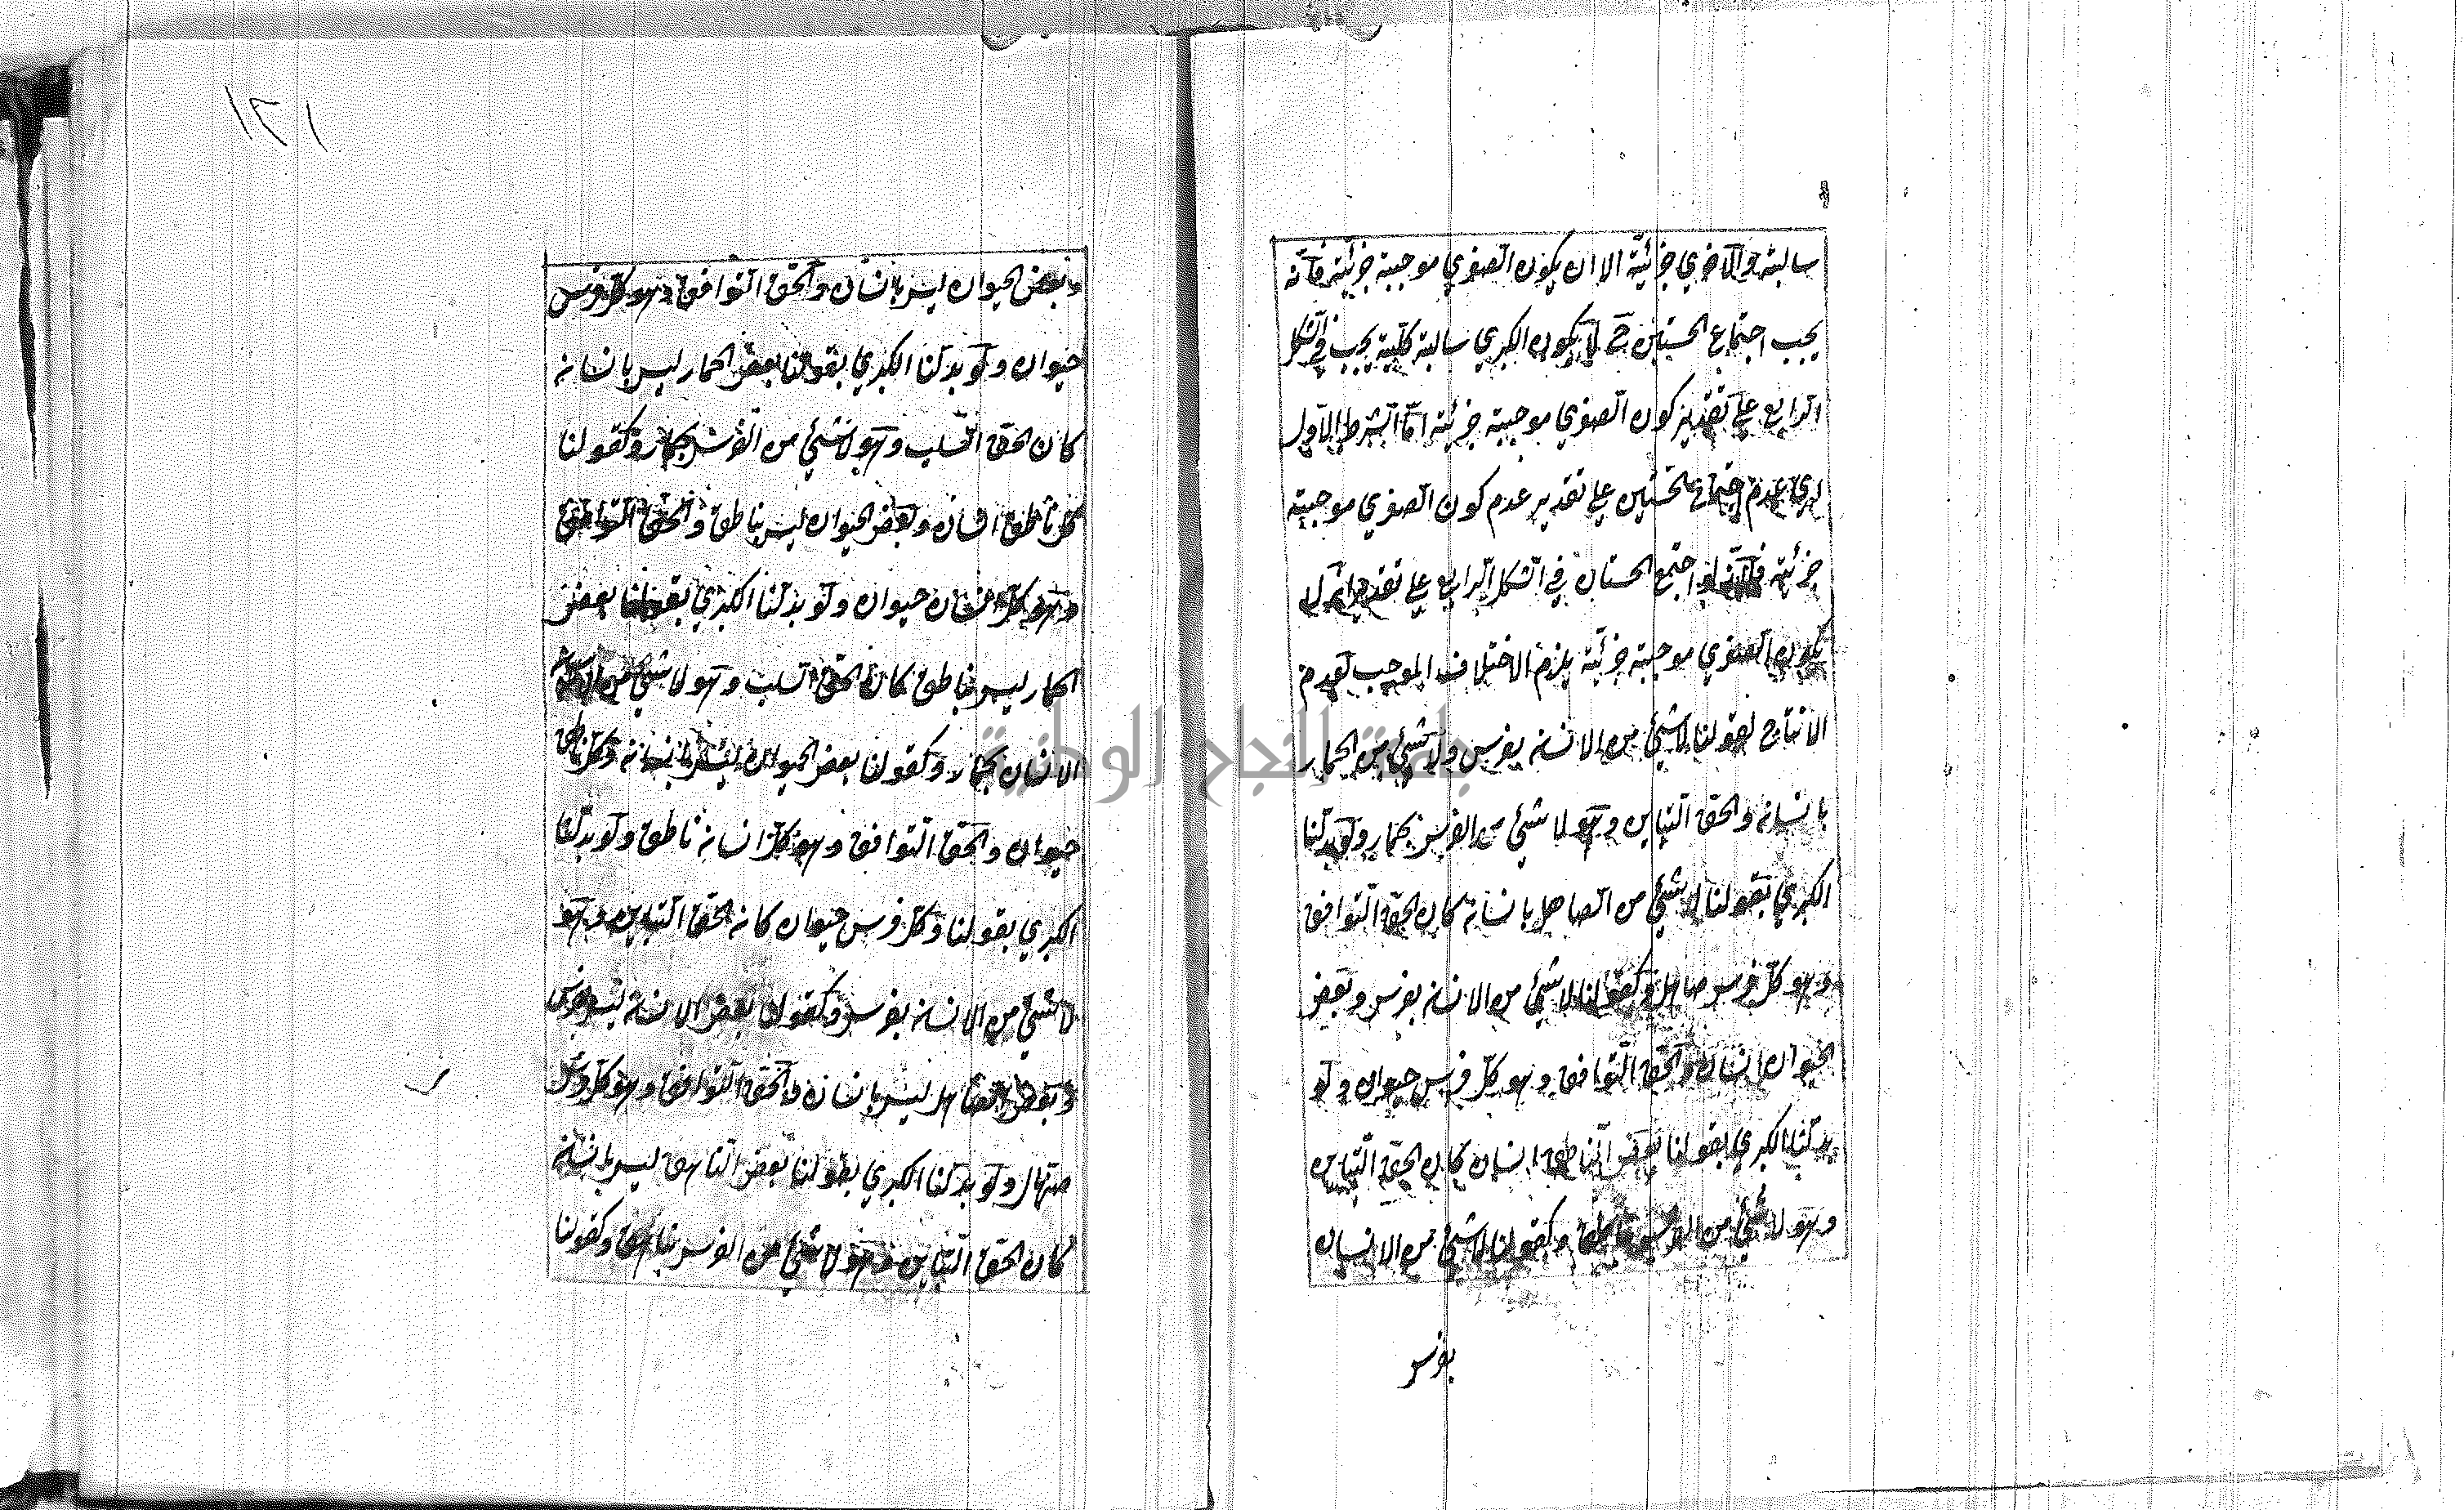 سالبة والآخري جزئيّة الا ان يكون الصغري موجبة جزئية فانه
يجب اجتماع الخستين ح لا يكون الكبري سالبة كلية يجب في الشكل
الرابع علي تقدير كون الصغري موجبة جزئية امّا الشرط الاول
اي عدم اجتماع الخستين علي تقدير عدم كون الصغري موجبة
جزئية فلانه لو اجتمع الخستان في الشكل الرابع علي تقدير ان لا
يكون الصغري موجبة جزئية يلزم الاختلاف الموجب لعدم
الانتاج لقولنا لا شئ من الانسان بفرس ولا شئ من الحمار
بانسان والحق التباين وهو لا شئ من الفرس بحمار ولو بدلنا
الكبري بقولنا لا شئ من الصاهل بانسان كان الحق التوافق
وهو كل فرس صاهل وكقولنا لا شئ من الانسان بفرس وبعض
الحيوان انسان والحق التوافق وهو كل فرس حيوان ولو
بدلنا الكبري بقولنا بعض الناطق انسان كان الحق التباين
وهو لا شئ من الفرس بناطق وكقولنا لا شئ من الانسان
بفرس
١٢١
وبعض الحيوان ليس بانسان والحق التوافق وهو كل فرس
حيوان ولو بدلنا الكبري بقولنا بعض الحمار ليس بانسان
كان الحق السلب وهو لا شئ من الفرس بحمار وكقولنا
كل ناطق انسان وبعض الحيوان ليس بناطق والحق التوافق
وهو كل انسان حيوان ولو بدلنا الكبري بقولنا بعض
الحمار ليس بناطق كان الحق السلب وهو لا شئ من
الانسان بحمار وكقولنا بعض الحيوان ليس بانسان وكل ناطق
حيوان والحق التوافق وهو كل انسان ناطق ولو بدلنا
الكبري بقولنا وكل فرس حيوان كان الحق التباين وهو
لا شئ من الانسان بفرس وكقولنا بعض الانسان ليس بفرس
وبعض الصاهل ليس بانسان والحق التوافق وهو كل فرس
صهال ولو بدلنا الكبري بقولنا بعض الناهق ليس بانسان
كان الحق التباين وهو لا شئ من الفرس بناهق وكقولنا
جامعة النجاح الوطنية